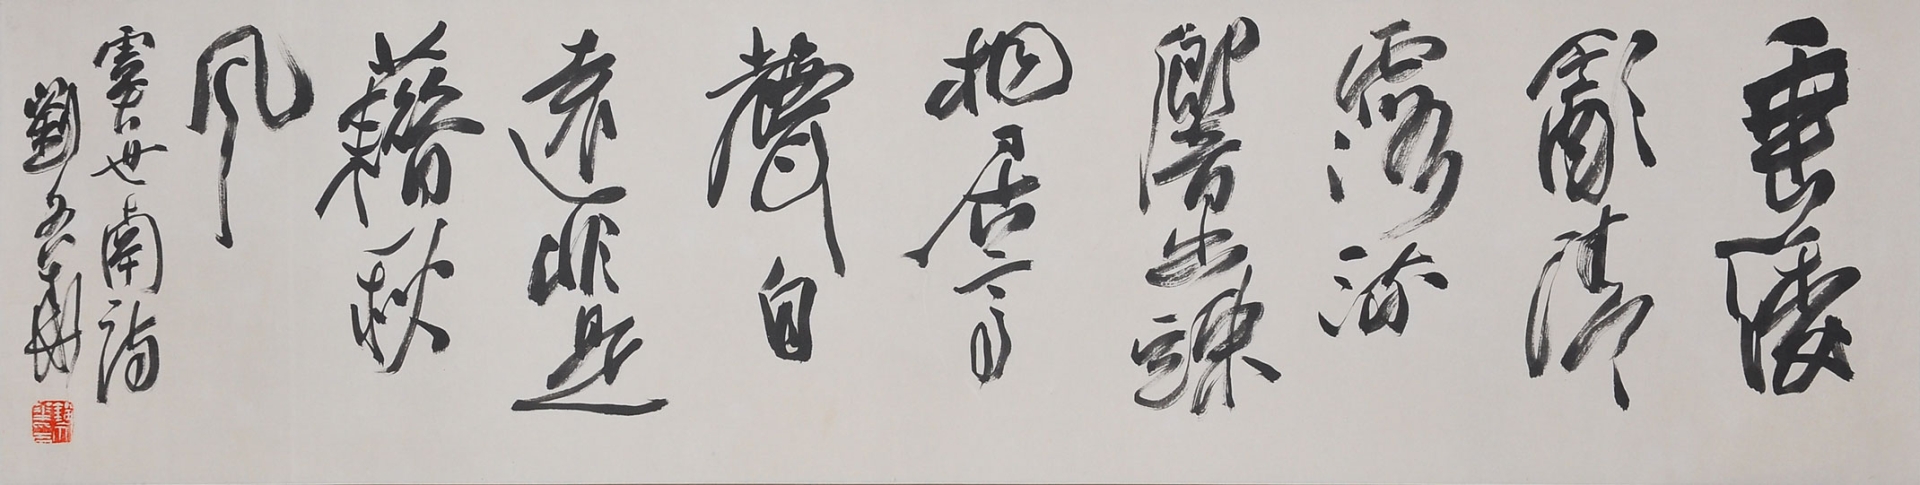 垂緌
飲清
露流
響出疎
桐居高
聲自
遠非是
藉秋
風
虞世南詩
劉